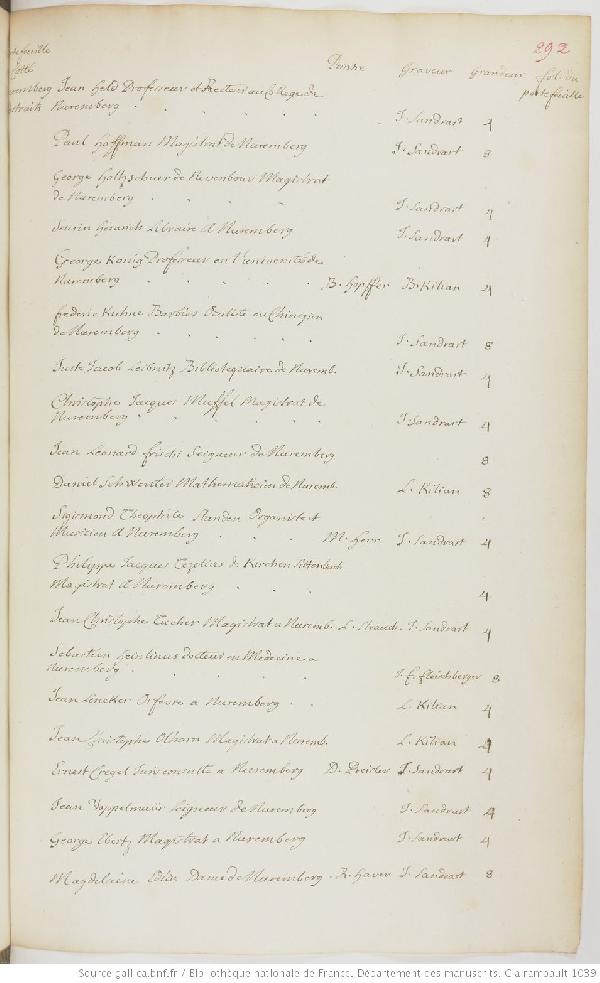 292
Peintre Graveur Grandeur fol. du
portefeuille
Jean Held Professeur et Recteur au College de
Nuremberg . . . . . J. Sandrart 4
Paul Hoffman Magistrat de Nuremberg J. Sandrart 8
George Holtzschuer de Nevenbour Magistrat
de Nuremberg . . . J. Sandrart 4
Libraire A Nuremberg J. Sandrart 4
George Konig Professeur en l'université de
Nuremberg . . . . B. Hopffer B. Kilian 4
frederic Kuhne Barbier Oculiste ou Chirurgien
de Nuremberg . . . . J. Sandrart 8
Juste Jacob Leibnitz Bibliotequaire de Nuremb. J. Sandrart 4
Christophe Jacques Muffel Magistrat de
Nuremberg . . . . J. Sandrart 4
Jean Leonard frischi Seigneur de Nuremberg 8
Daniel Schwenter Mathematicien de Nuremb. L. Kilian 8
Sigismond Theophile Standen Organiste et
Musicien A Nuremberg . . M. Herr J. Sandrart 4
Philippe Jacques Tezelius de Kirchen Sittenbach
Magistrat A Nuremberg . . . 4
Jean Christophe Tucher Magistrat a Nuremb. L. Strauch J. Sandrart 4
Sebastien docteur en Medecine a
Nuremberg . . . . J. F. fleischberger 8
Jean Lencker Orfevre a Nuremberg . . L. Kilian 4
Jean Christophe Olhavn Magistrat a Nuremb. L. Kilian 4
Ernest Cregel Jurisconsulte a Nuremberg D. Preisler J. Sandrart 4
Jean Doppelmeir Seigneur de Nuremberg J. Sandrart 4
George Ebertz Magistrat a Nuremberg J. Sandrart 4
Magdelaine Dame de Nuremberg . R. Haver J. Sandrart 8
Source gallica.bnf.fr / Bibliothèque nationale de France. Département des manuscrits. Clairambault 1039